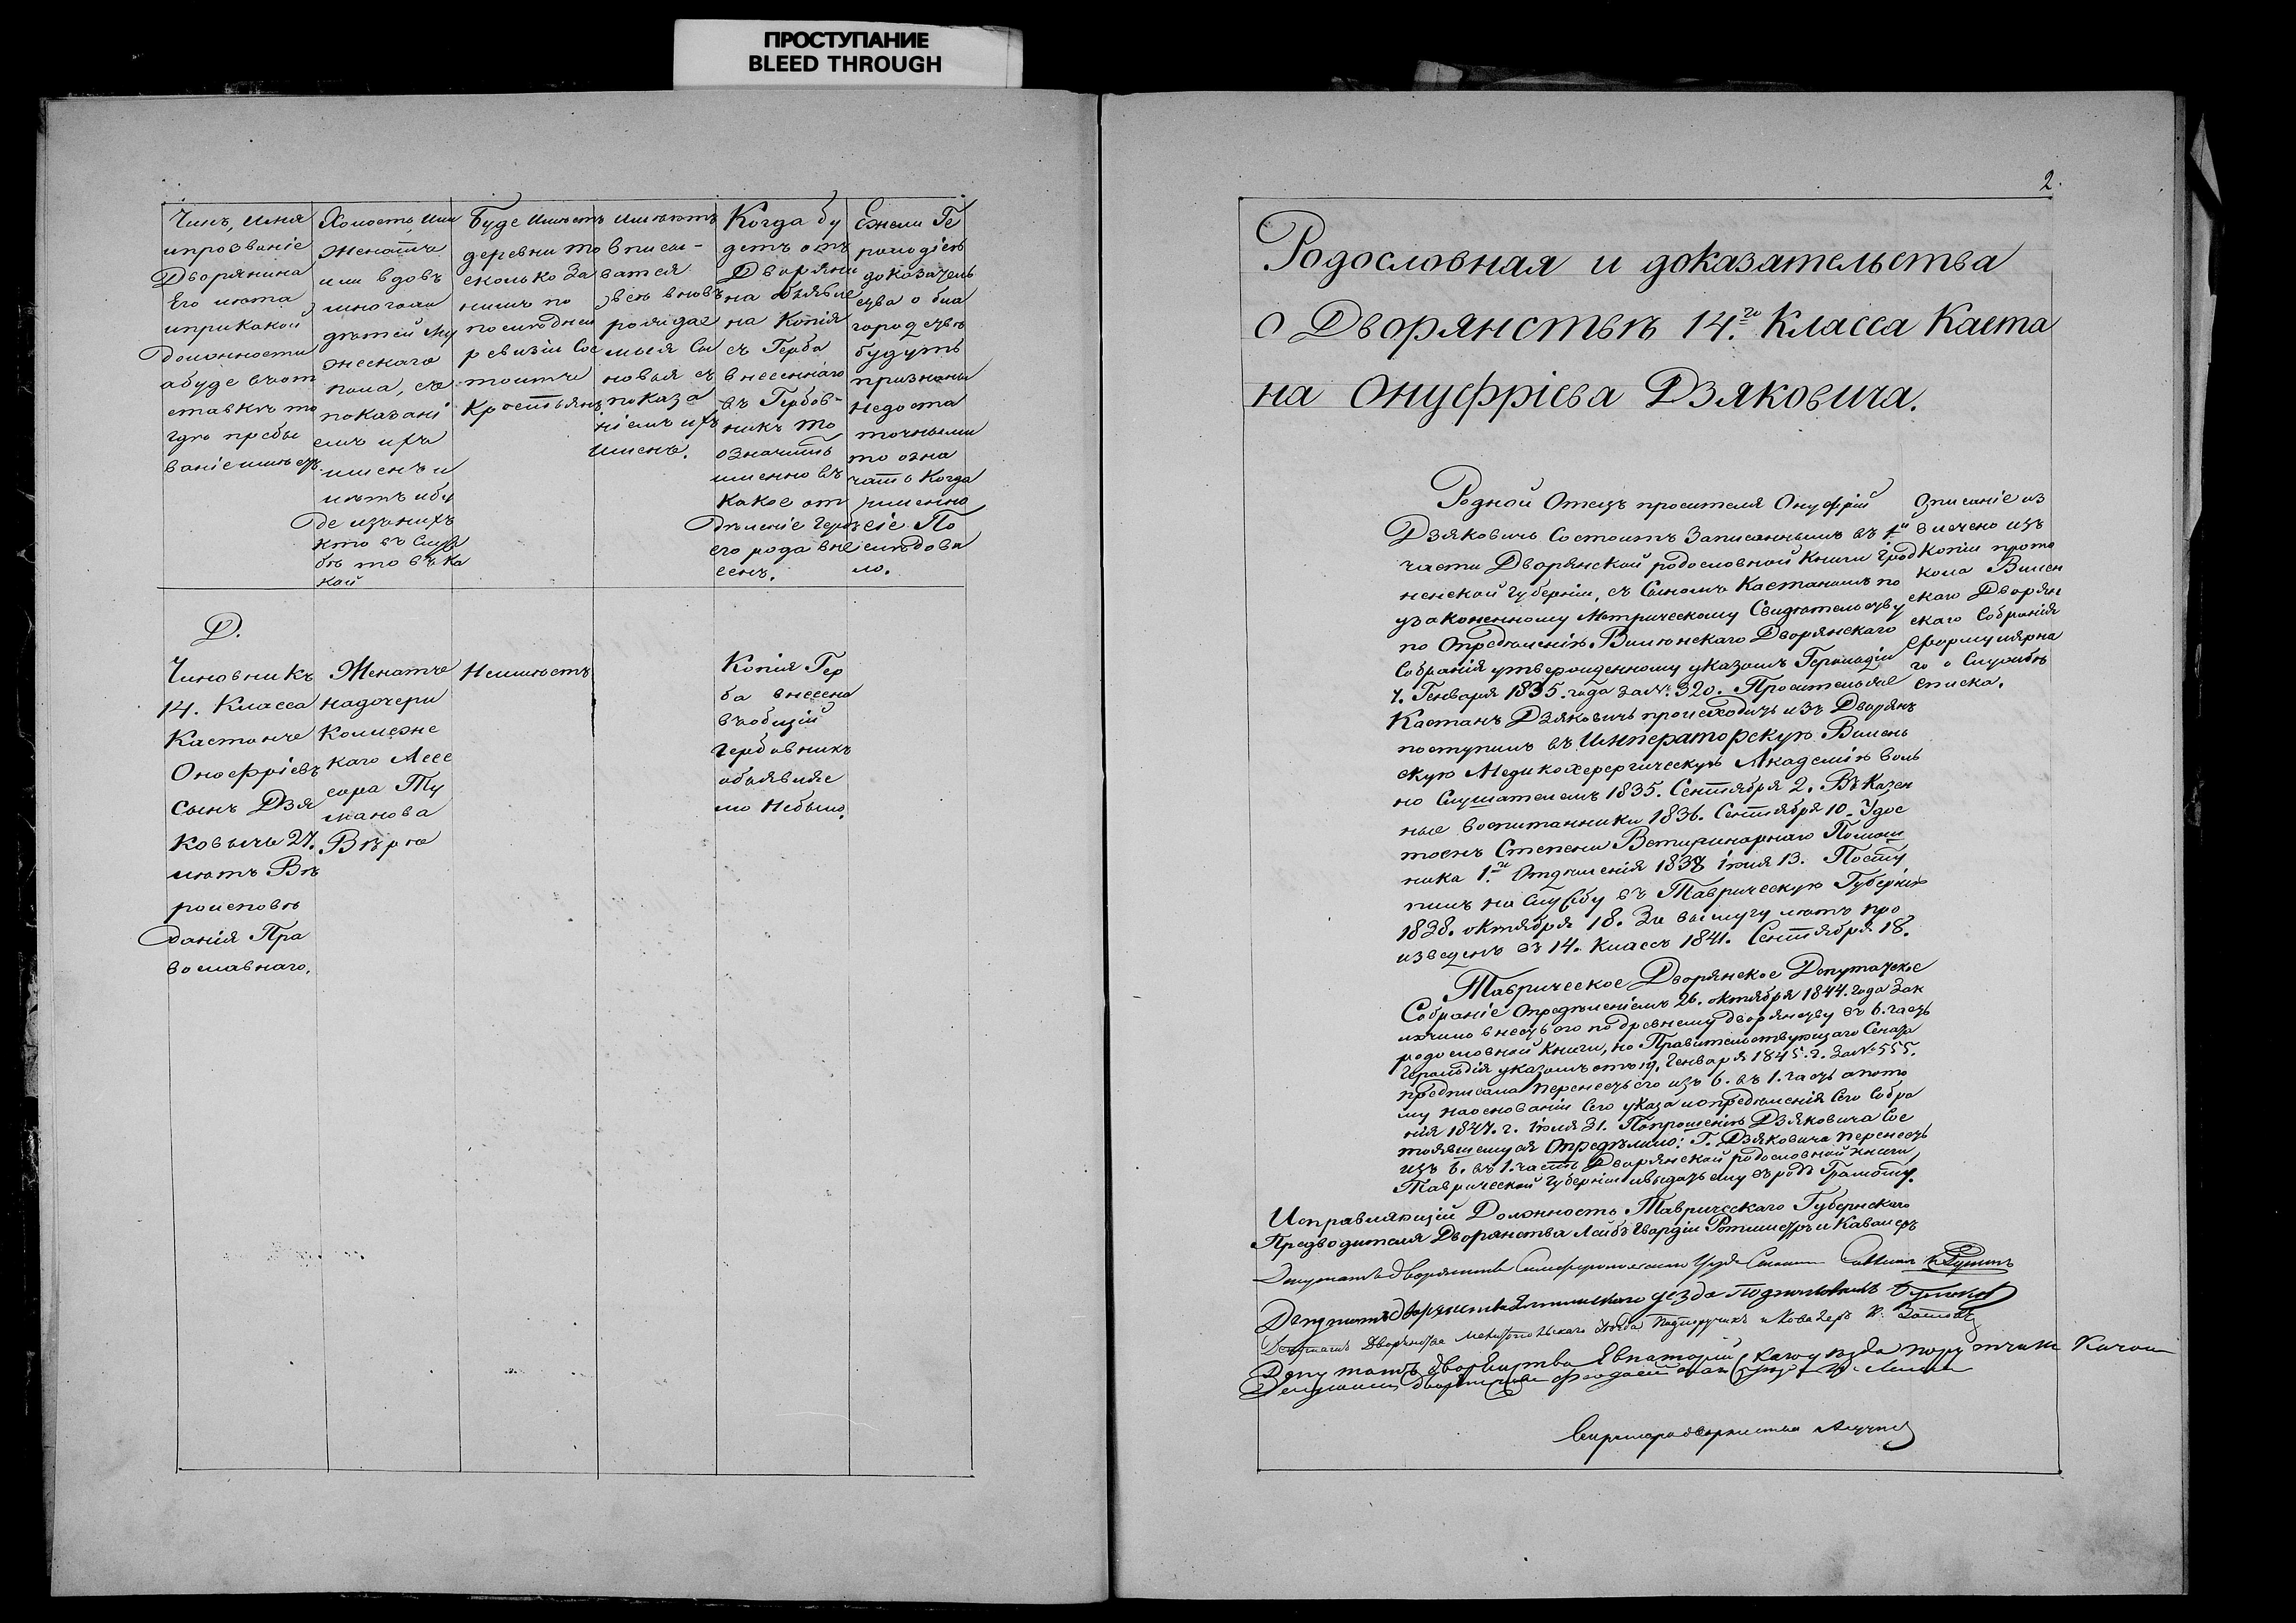 ПРОСТУПАНИЕ
BLEED THROUGH
Чинъ, имя
ипрозваніе
Дворянина
Его лѣта
иприкакой
Должности
абуде въот
ставкѣ то
гдѣ пребы
ваніе имѣетъ.
Холостъ, или
Женатъ
или вдовъ
сколько
дѣтей му
жескаго
пола, съ
показані
емъ ихъ
именъ и
лѣтъ ибу
де изънихъ
кто въ Служ
бѣ то въ ка
кой
Буде имѣетъ
деревни то
сколько за
нимъ по
послѣдней
ревизіи Сос
тоитъ
Крестьянъ
Имѣютъ
вписы-
ватся
всѣ вновь
рожидае
мыя Сы
новья съ
показа
ніемъ ихъ
имена.
Когда бу
детъ отъ
Дворяни
на объявле
на Копія
съ Герба
внесеннаго
въ Гербов-
никъ то
означить
именно въ
какое от
дѣленіе Гербъ
его рода вне
сенъ.
Ежели Ге
рольдіею
доказатель
ства о бла
городствѣ
будутъ
признаны
Недоста
точными
то озна
чать Когда
именно
сіе По
слѣдова
ло.
Д.
Чиновникъ
14. Класса
Каетанъ
Оноефріевъ
сынъ Дзя
ковичь 27.
лѣтъ Вѣ
роисповѣ
данія Пра
вославнаго.
Женатъ
надочери
Коллежс
каго Ассе
сора Ту
манова
Вѣрѣ
Неимѣетъ
Копія Гер
ба внесена
въобщій
Гербовникъ
объявляе
мо Небыло.
2.
Родословная и доказательства
о Дворянствѣ 14.го Класса Каета
на Онуефріева Дзяковича.
Родной Отецъ просителя Онуфрій
Дзяковичь Состоитъ Записаннымъ въ 1й
части Дворянской родословной Книги Грод
ненской Губерніи, съ Сыномъ Каетаномъ по
узаконенному Метрическому Свидѣтельству
по Опредѣленію Виленскаго Дворянскаго
Собранія утвержденному указомъ Герольдіи
7. Генваря 1835. года за № 320. Просительже
Каетанъ Дзяковичь происходить изъ Дворянъ
поступилъ въ Императорскую Вилен
скую Медикохерергическую Академію воль
но Слушателемъ 1835. Сентября 2. Въ Казен
ные воспитанники 1836. Сентября 10. Удос
тоенъ Степени Ветиринарнаго Помощ
ника 1.го Отдѣленія 1838 іюля 13. Посту
пилъ на Службу въ Таврическую Губернію
1838. октября 18. За выслугу лѣтъ про
изведенъ въ 14. Классъ 1841. Сентября 18.
Описаніе из
влечено изъ
Копіи прото
кола Вилен
скаго Дворян
скаго Собранія
Формулярна
го о Службѣ
списка.
Таврическое Дворянское Депутатское
Собраніе Опредѣленіемъ 26. октября 1844. года Зак
лючило внесть его по древнему дворянству въ 6. часть
родословной Книги, но Правительствующаго Сената
Герольдія указомъ отъ 19. Генваря 1845. г. За № 555.
предписала перенесть его изъ 6. въ 1. часть апото
му наоснованіи Сего указа иопредѣленія Сего Собра
нія 1847. г. Іюля 31. Попрошенію Дзяковича Сос
тоявшемуся Опредѣлило: Г. Дзяковича перенесть
изъ 6. въ 1. часть Дворянской родословной Книги,
Таврической Губерніи ивыдать ему въ родъ Грамоту.
Исправляющій Должность Таврическаго Губернскаго
Предводителя Дворянства Лейбъ Гвардіи Ротмистръ и Кавалеръ
Депутатъ дворянства Симферопольскаго Уезда
Депутатъ дворянства Ялтинскаго уезда Подполковникъ
Депутатъ Дворянства Мелитопольскаго Уѣзда Подпоручикъ и Кавалеръ
Депутатъ дворянства Евпаторійскаго уезда поручикъ
Депутатъ дворянства Феодосійскаго
Секретарь дворянства